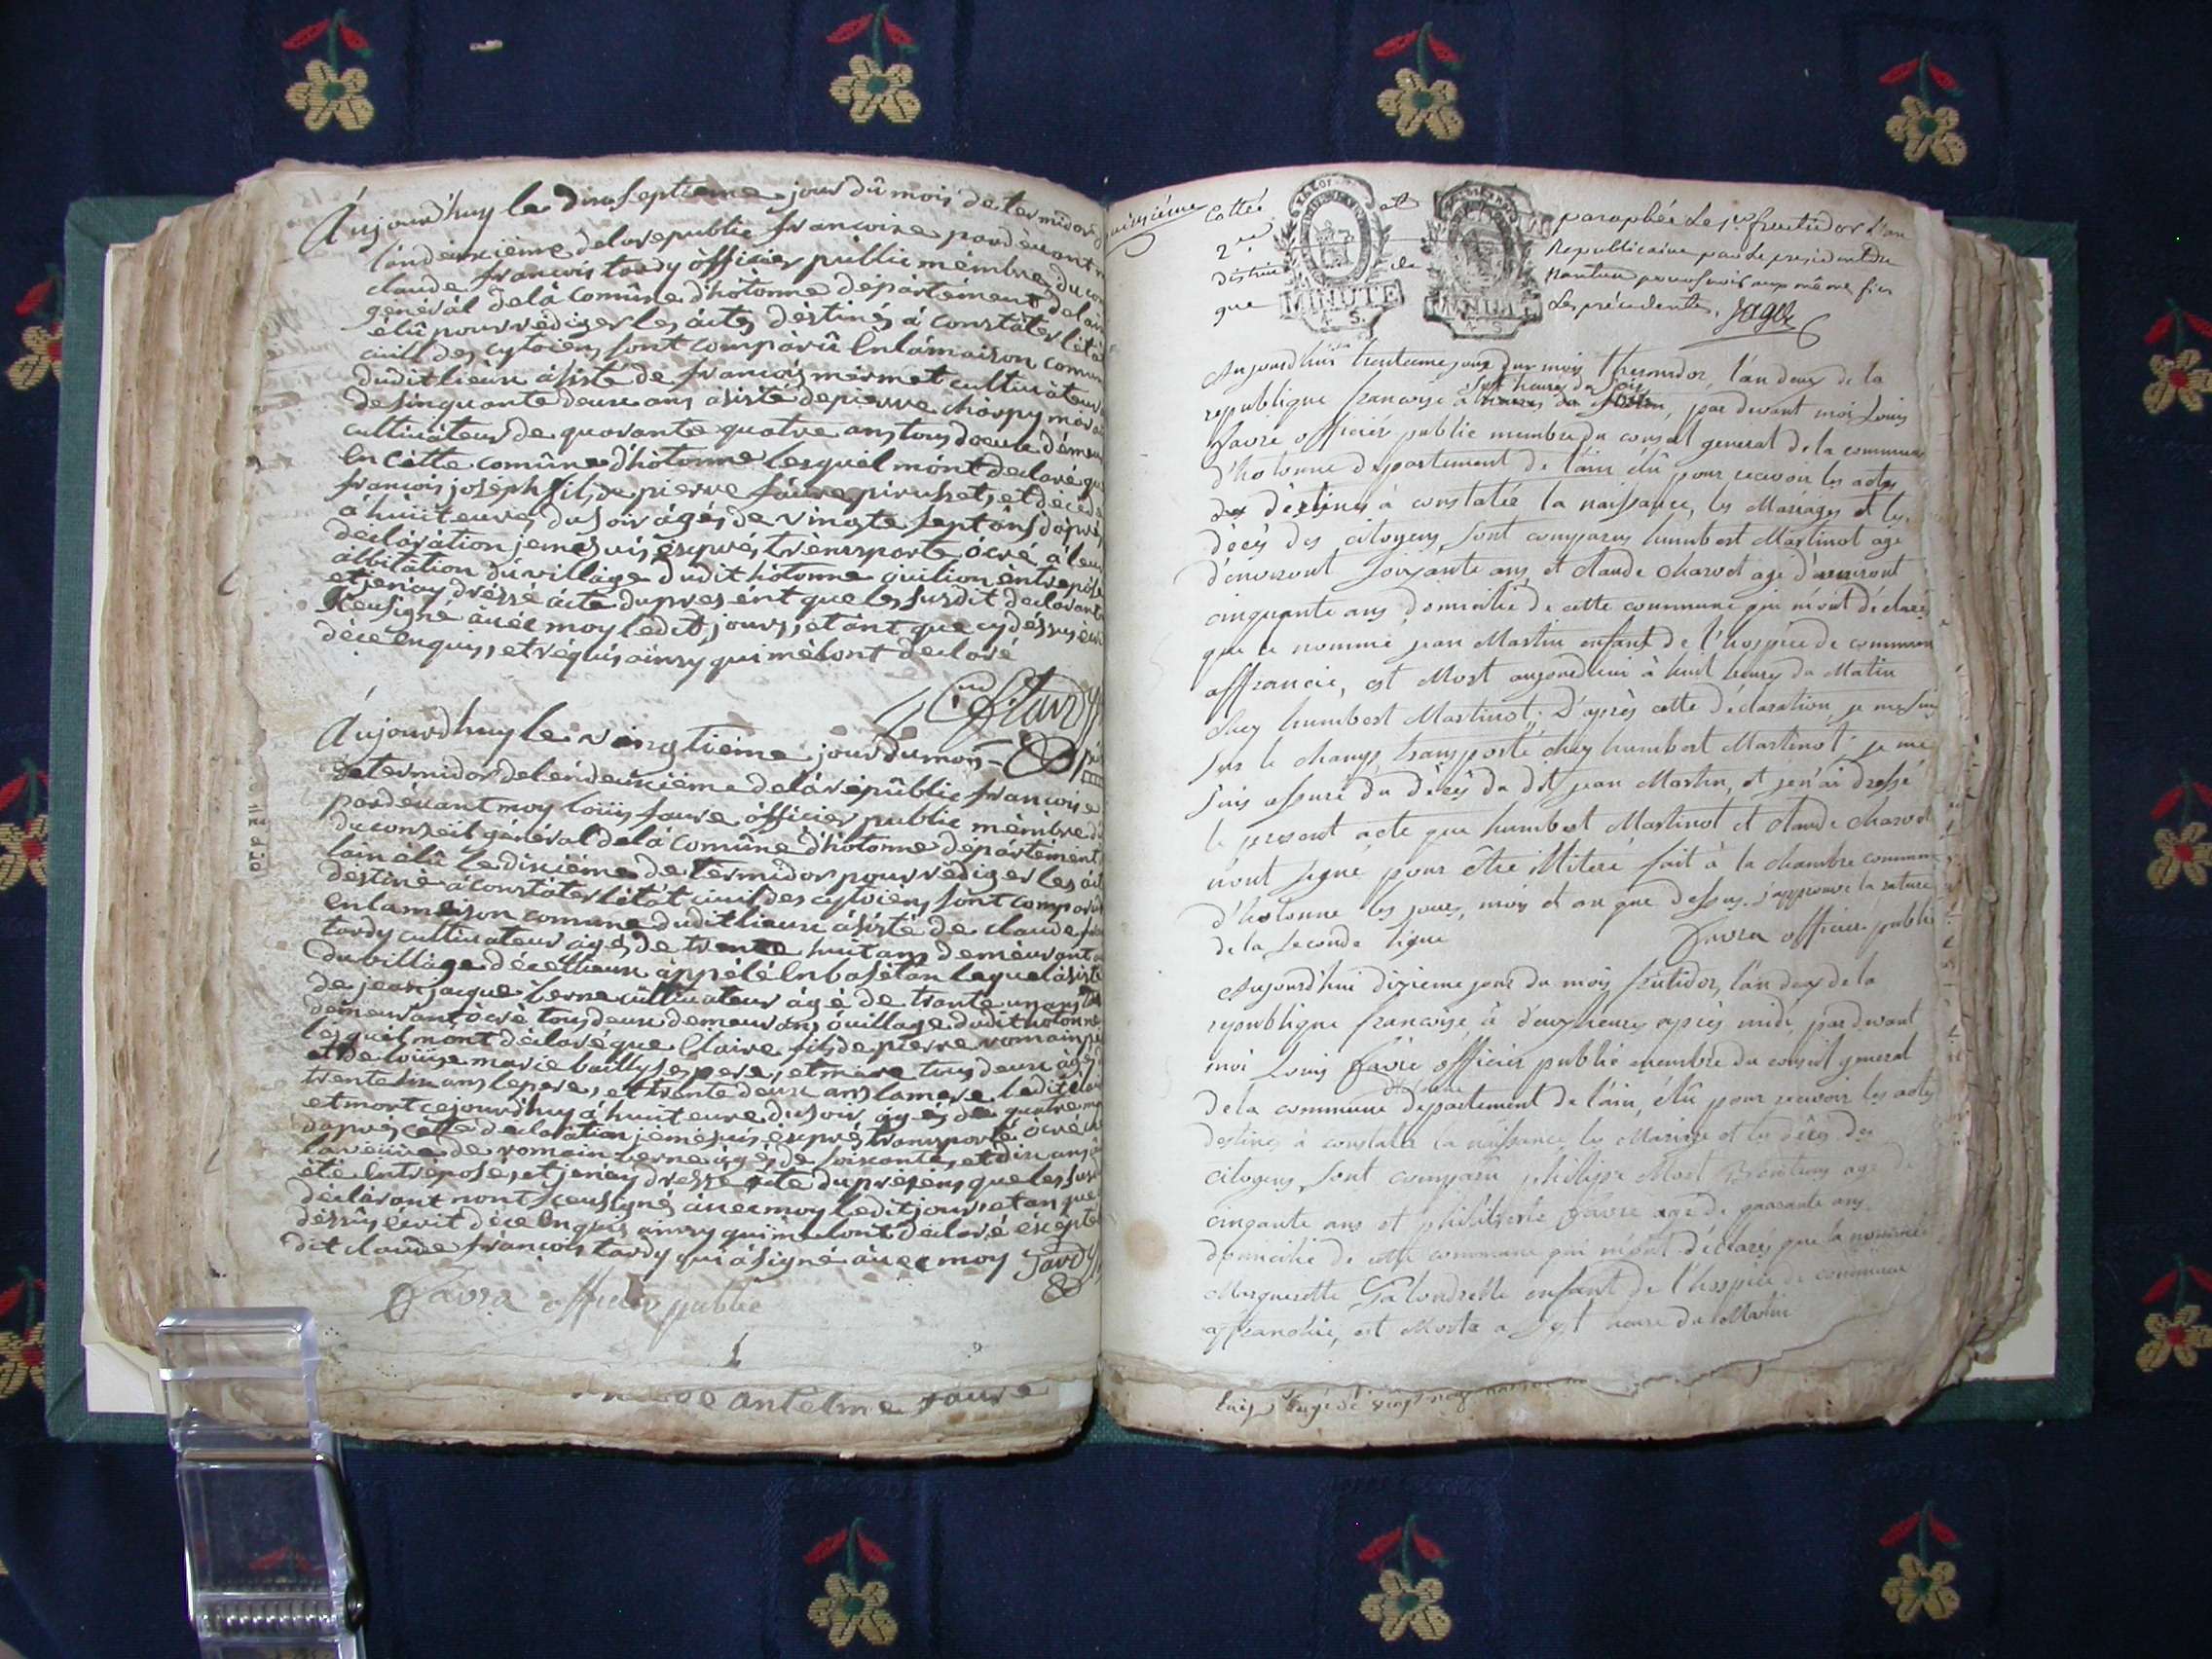 Aujourd'huy le dixseptieme jour dû mois de termidor
l'an deuxcième de la republic francoise pardevant
claude francois tardy officier public mémbre du
genéral de la comûne d'hotonne départément de lain
élû pour rédiger les actes déstinés a constater l'éta
civill des cytoiens sont comparû En la maison comun
dudit lieux asisté de francois mermet cultivateur
de sinquante deux ans asisté de pierre charpy
cultivateur de quarante quatre ans tous deux
En cette comûne d'hotonne lesquel m'ont declaré que
francois joséph fils de pierre faure pirusset et décédé
a huiit eures du soir agés de vingte sept âns d'apré
déclaration je me suis éxprés trensporté a leur
abitation du village dudit hotonne
et jenay dréssé acte du present que les susdit declarant
signé avéc moy ledit jours, et ant que cy déssus
dece enquis, et réquis ainsy qui mélont declaré
Tardy
Aujourd'huy le vingtiéme jour du mois
de termidor de lan deuxciéme de la républic francoise
pardévant moy louiis faure officier public mémbre
du conseil général de la comûne d'hotonne départément
lain élû le diziéme de termidor pour rédiger les
destiné a constater l'état civil des cytoiens sont comparû
En la maison comune dudit lieux asisté de claude
tardy cultivateur agés de trente huit ans demeurant
du village appélé En basétan lequel asisté
de jean jacque berne cultivateur agé de trante un ans
demeurant tous deux demeurans village dudit hotonne
lesquél m'ont déclaré que Claire fils de pierre romain
et de louise marie bailly ses pere, et mére tous deux agés
trente ans le pere, et trente deux ans la mere ledit
et mort ce jourd'huy a huit eure du soir agés de quatre
d'apres cette declaration je mesuis éxprés transporté
la veuve de romain berne agés de soixante, et dix ans
été Entréposé, et jenay dressé acte du présens que les
déclarant n'ont signé avec moy ledit jour, et an que
déssus écrit dece Enquis ainsy qui melont déclaré éxépté
dit claude francois tardy qui a signé avec moy Tardy
favre officier public
antelme faure
Cotté et paraphée le 1er fructidor l'an
2me Republicaine par le president du
district de Nantua pour servir aux même fins
que les précedentes. Jagot
MINUTE
4. S.
MINUTE
4. S.
Aujourdhui trentieme jour du mois thermidor, l'an deux de la
sept heures du soir
republique francoise à heures du, par devant moi Louis
favre officier public membre du conseil general de la commune
d'hotonne departement de l'ain élû pour recevoir les actes
destinés à constater la naissance, les Mariages et les
décès des citoyens, sont comparus humbert Martinot agé
d'environt soixante ans et claude charvet agé d'environt
cinquante ans domicilié de cette commune qui m'ont déclarés
que le nommé jean Martin enfant de l'hospice de commune
affrancie, est Mort aujourdhui à huit heures du Matin
chez humbert Martinot; D'après cette déclaration, je me suis
sur le champ transporté chez humbert Martinot je me
suis assuré du décés du dit jean Martin, et j'en ai dressé
le present acte que humbert Martinot et claude charvet
n'ont signé pour être illiteré fait à la chambre commune
d'hotonne les jours, mois et an que dessus. j'approuve la rature
de la seconde ligne favre officier public
Aujourd'hui dixieme jour du mois frutidor, l'an deux de la
republique francoise, à deux heures après midi, par devant
moi Louis favre officier public membre du conseil general
d'hotonne
de la commune departement de l'ain, élû pour recevoir les actes
destinés à constater la naissance, les Mariage et les décès des
citoyens, sont comparu philippe Most agé de
cinqante ans et philiberte favre agé de quarante ans
domicilié de cette commune qui m'ont déclarés que la nommée
Marguerette enfant de l'hospice de commune
affranchie, est Morte a sept heure du Matin
agé de vingt neuf